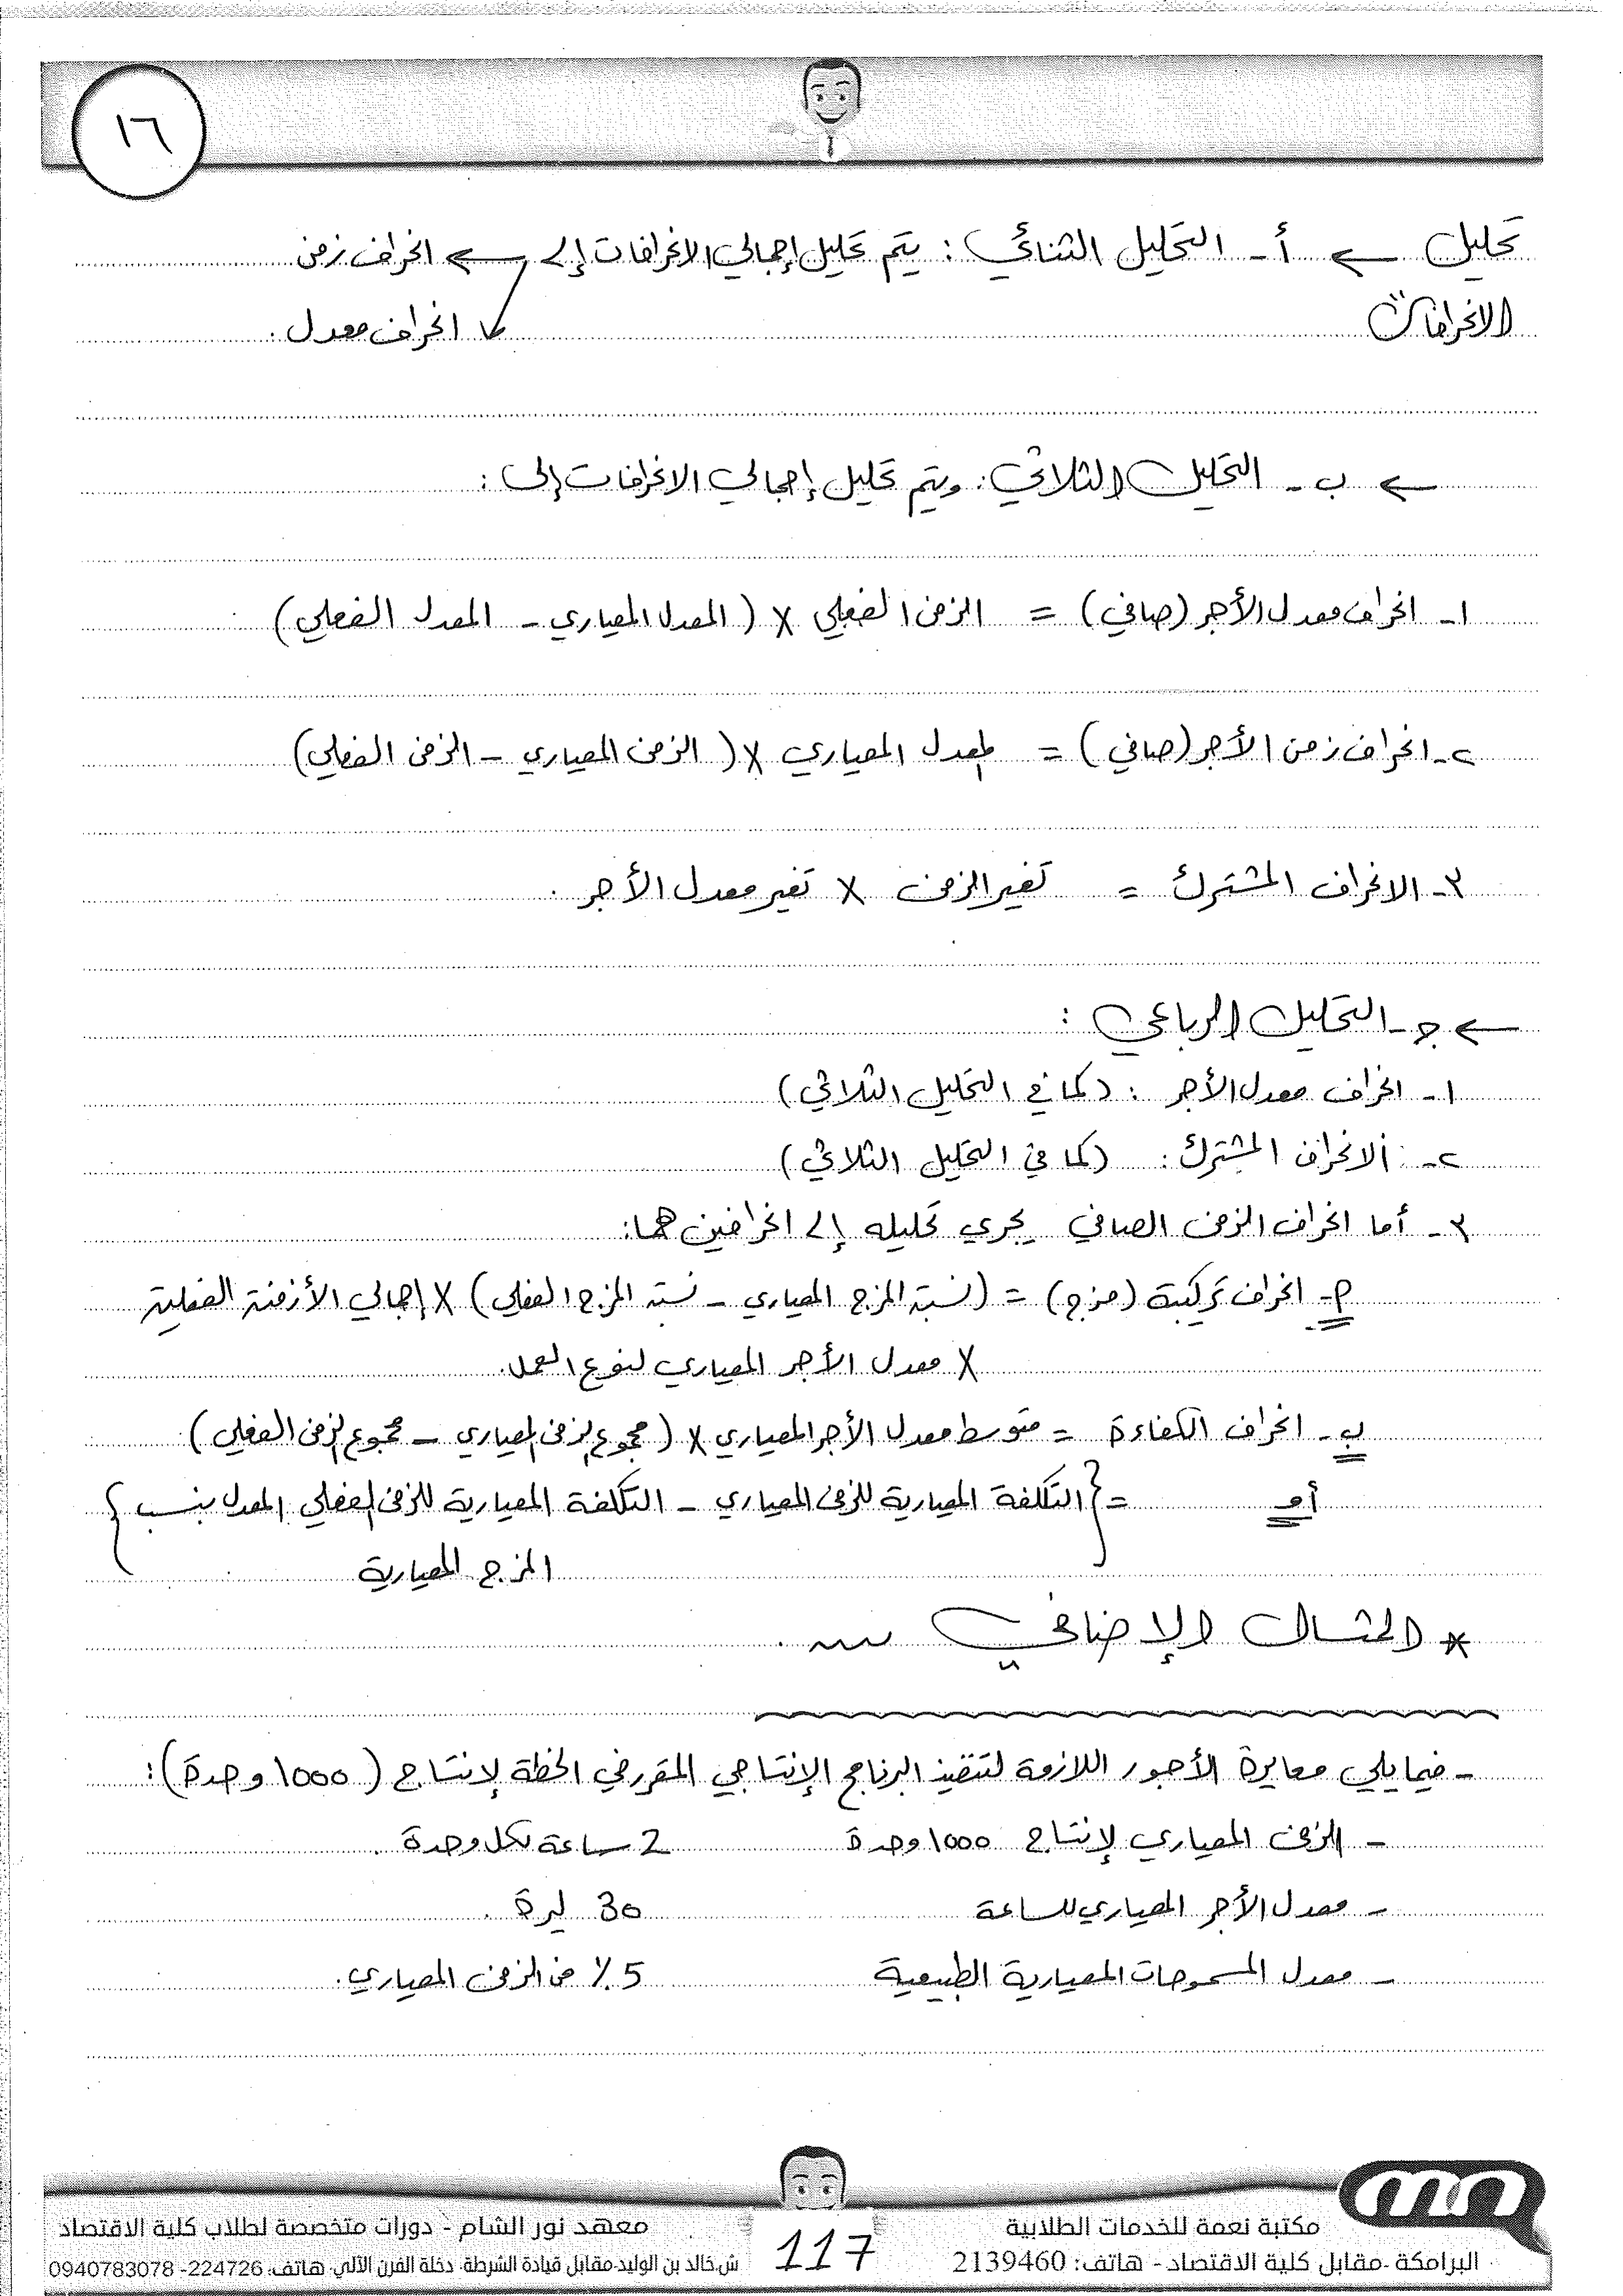 ١٦
تحليل ← أ- التحليل الثنائي : يتم تحليل إجمالي الانحرافات إلى ← انحراف زمن
الانحرافات ↙ انحراف معدل .
← ب- التحليل الثلاثي : ويتم تحليل إجمالي الانحرافات إلى :
١- انحراف معدل الأجر (صافي) = الزمن الفعلي × (المعدل المعياري - المعدل الفعلي)
٢- انحراف زمن الأجر (صافي) = المعدل المعياري × (الزمن المعياري - الزمن الفعلي)
٣- الانحراف المشترك = تغير الزمن × تغير معدل الأجر .
← ج- التحليل الرباعي :
١- انحراف معدل الأجر : (كما في التحليل الثلاثي)
٢- الانحراف المشترك : (كما في التحليل الثلاثي)
٣- أما انحراف الزمن الصافي يجري تحليله إلى انحرافين هما :
P- انحراف تركيبة (مزج) = (نسبة المزج المعياري - نسبة المزج الفعلي) × إجمالي الأزمنة الفعلية
× معدل الأجر المعياري لنوع العمل .
ب- انحراف الكفاءة = متوسط معدل الأجر المعياري × (مجموع الزمن المعياري - مجموع الزمن الفعلي)
أو = {التكلفة المعيارية للزمن المعياري - التكلفة المعيارية للزمن الفعلي المعدل بنسب
المزج المعيارية}
* المثال الإضافي
- فيما يلي معايرة الأجور اللازمة لتنفيذ البرنامج الإنتاجي المقرر في الخطة لإنتاج (١٥٥٥ وحدة) :
- الزمن المعياري لإنتاج ١٥٥٥ وحدة 2 ساعة لكل وحدة .
- معدل الأجر المعياري للساعة 30 ليرة .
- معدل المسموحات المعيارية الطبيعية 5٪ من الزمن المعياري .
مكتبة نعمة للخدمات الطلابية
البرامكة -مقابل كلية الاقتصاد - هاتف: 2139460
117
معهد نور الشام - دورات متخصصة لطلاب كلية الاقتصاد
ش.خالد بن الوليد-مقابل قيادة الشرطة- دخلة الفرن الآلي- هاتف: 224726- 0940783078